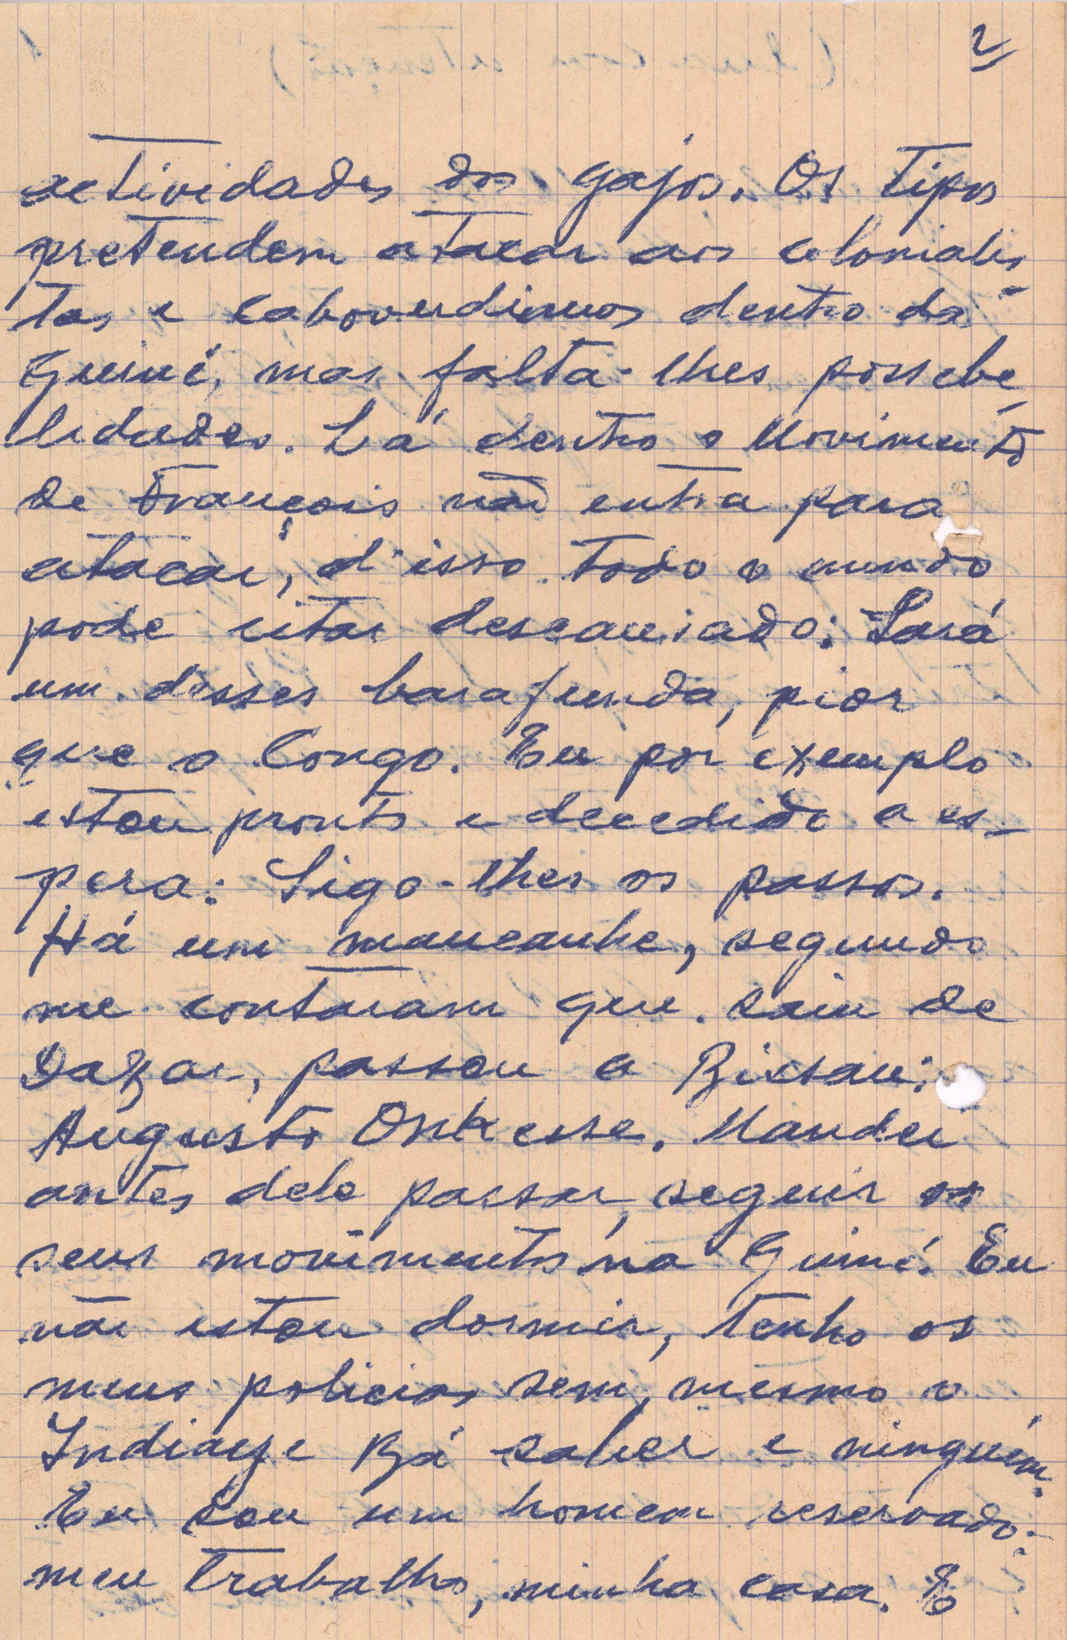 2
actividades dos gajos. Os tipos
pretendem atacar aos colonialis-
tas e caboverdianos dentro da
Guiné, mas falta-lhes possebe
lidades. Lá dentro o Movimento
de François não entra para
atacar, d'isso todo o mundo
pode estar descansado: Sará
um desses barafunda, pior
que o Congo. Eu por exemplo
estou pronto e decedido a es-
pera: Sigo-lhes os passos.
Há um mancanhe, segundo
me contaram que saiu de
Dakar, passou a Bissau:
Augusto. Mandei
antes dele passar, seguir os
seus movimentos na Guiné. Eu
não estou dormir, tenho os
meus policias sem mesmo o
Indiaye Bá saber e ninguém.
Eu sou um homem reservado:
meu trabalho, minha casa. E